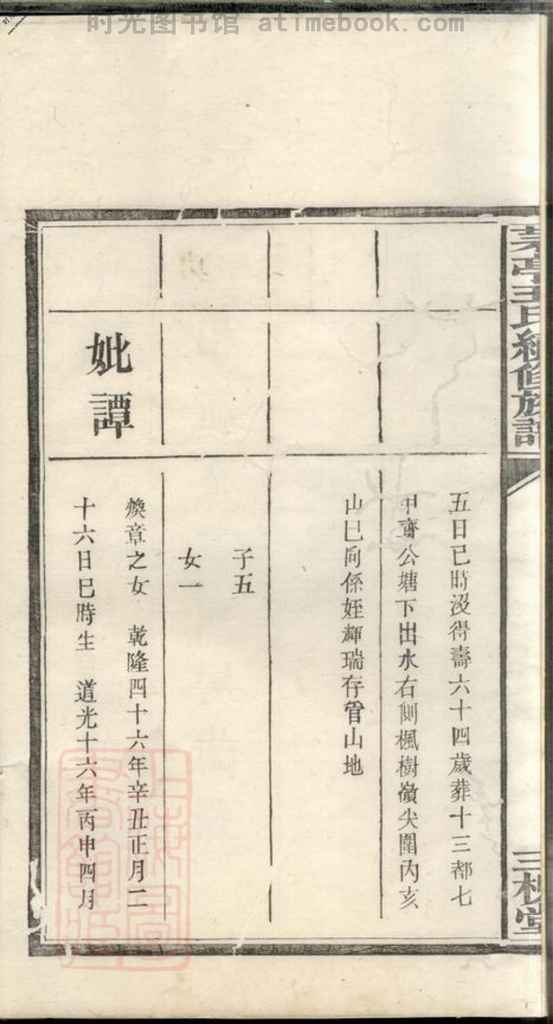 时光图书馆 atimebook.com
亭王氏續修族譜
三槐堂
五日巳時没得壽六十四歲葬十三都七
甲齊公塘下出水右側楓樹嶺尖圍內亥
山巳向係姪輝瑞存管山地
子五
女一
妣譚
煥章之女 乾隆四十六年辛丑正月二
十六日巳時生 道光十六年丙申四月